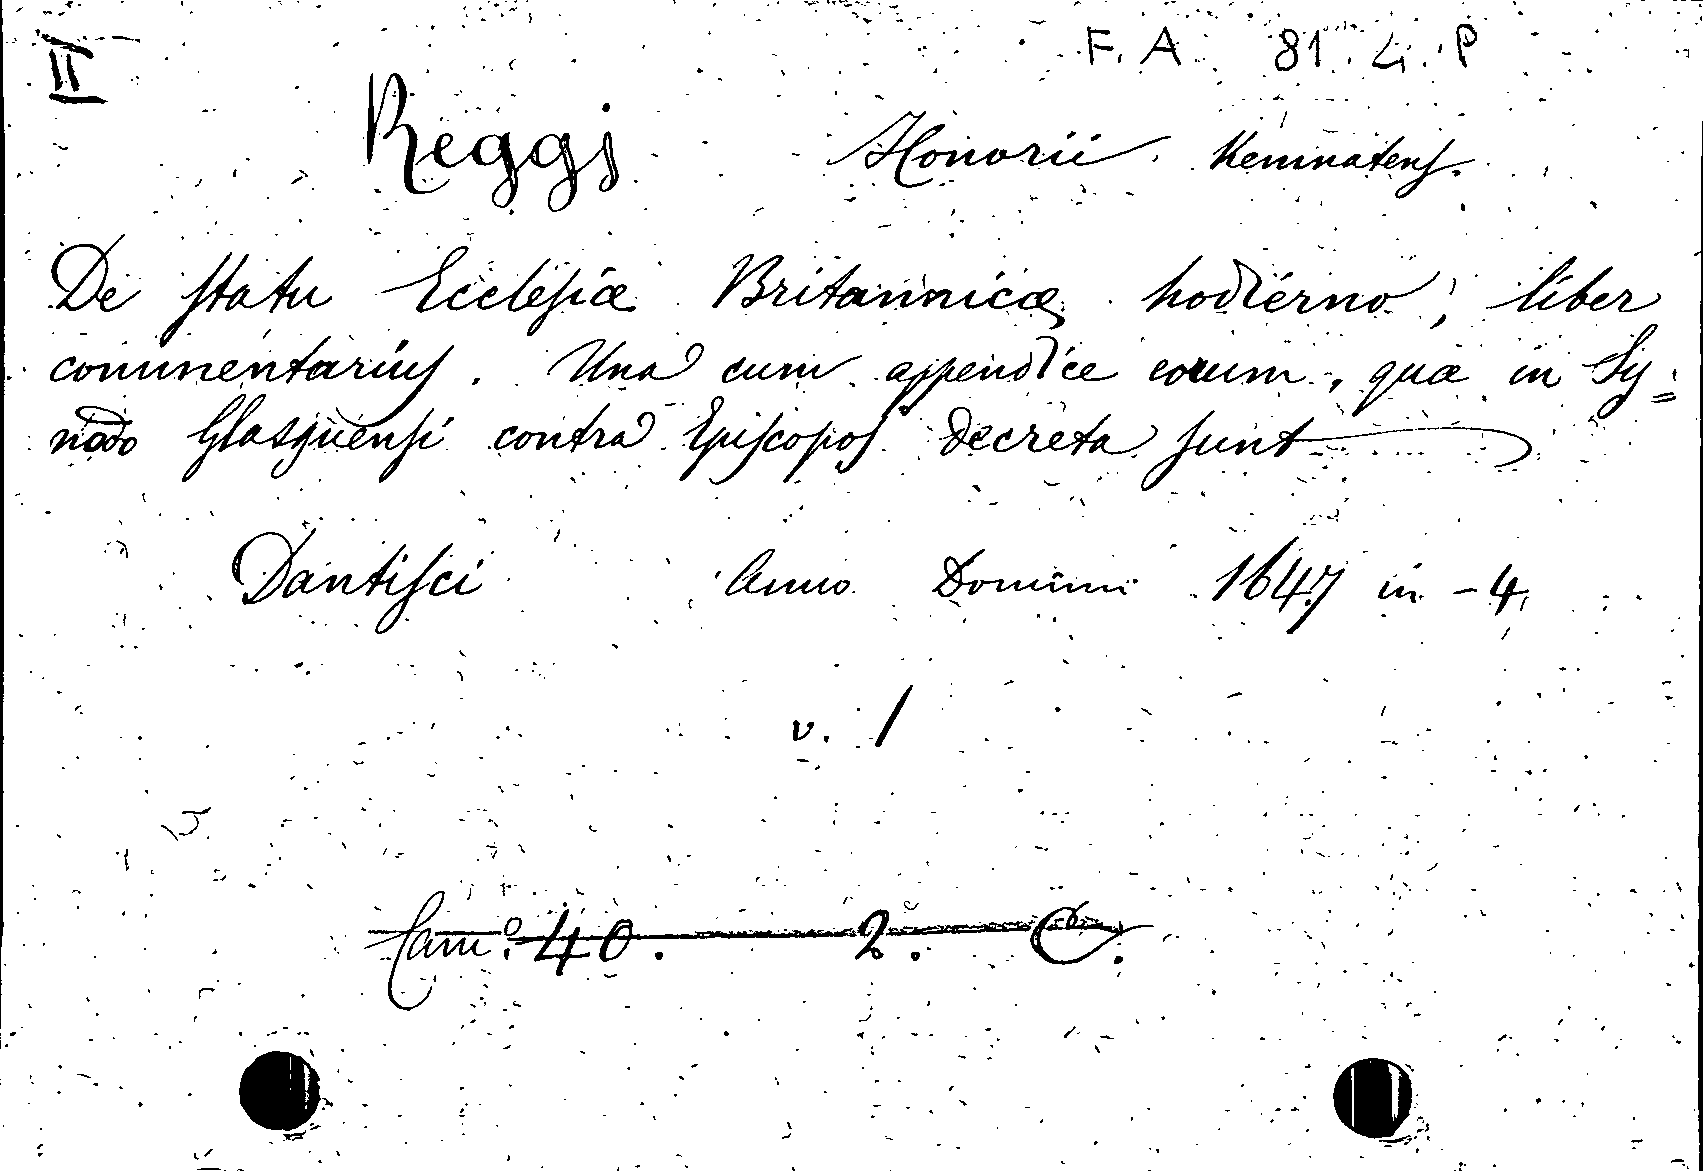 II F. A. 81. 4. P
Reggj Honorii. Keminatens.
De statu Ecclesiæ Britannicæ hodierno, liber
commentarius. Una cum appendice eorum, quæ in Sy=
nodo Glasguensi contra Episcopos decreta sunt
Dantisci Anno Domini 1647 in -4.
v. 1
Cam.º 40. 2. C.